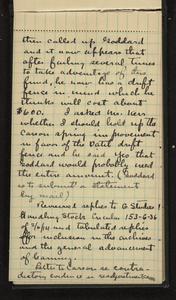 then called up Goddard
and it now appears that
after feeling several times
to take advantage of this
fund, he now has a drift
fence in mind which he
thinks will cost about
$600. I asked Mr. Kerr
whether I should hold up the
Carson spring improvement
in favor of the Datil drift
fence and he said yes that
Goddard would probably need
the entire amount. (Goddard
is to submit a statement
by mail)
Reviewed replies to G Stukes
Handling Stock Circular 153-G-36
of 9/6/11 and tabulated replies
for inclusion in the archives
and the general advancement
of learning.
Letter to Carson re contra-
dictory evidence in